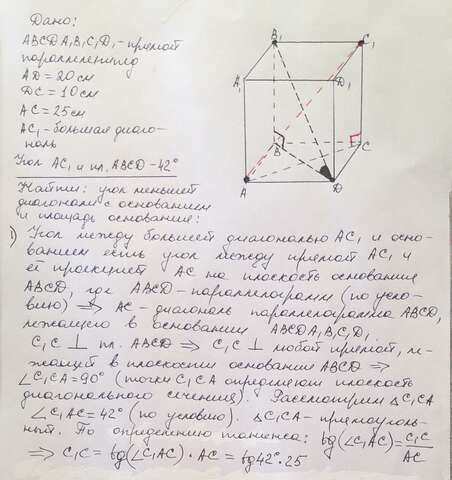 Дано:
ABCDA₁B₁C₁D₁ - прямой
параллелепипед
AD = 20 см
DC = 10 см
AC = 25 см
AC₁ - большая диаго-
наль
Угол AC₁ и пл. ABCD - 42°
Найти: угол меньшей
диагонали с основанием
и площадь основания:
B₁
C₁
A₁
D₁
B
C
A
D
1) Угол между большей диагональю AC₁ и осно-
ванием есть угол между прямой AC₁ и
её проекцией AC на плоскость основания
ABCD, где ABCD - параллелограмм (по усло-
вию) ⇒ AC - диагональ параллелограмма ABCD,
лежащего в основании ABCDA₁B₁C₁D₁
C₁C ⊥ пл. ABCD ⇒ C₁C ⊥ любой прямой, ле-
жащей в плоскости основания ABCD ⇒
∠C₁CA = 90° (точки C₁CA определяют плоскость
диагонального сечения). Рассмотрим △C₁CA
∠C₁AC = 42° (по условию). △C₁CA - прямоуголь-
ный. По определению тангенса: tg(∠C₁AC) = C₁C/AC
⇒ C₁C = tg(∠C₁AC) · AC = tg42° · 25